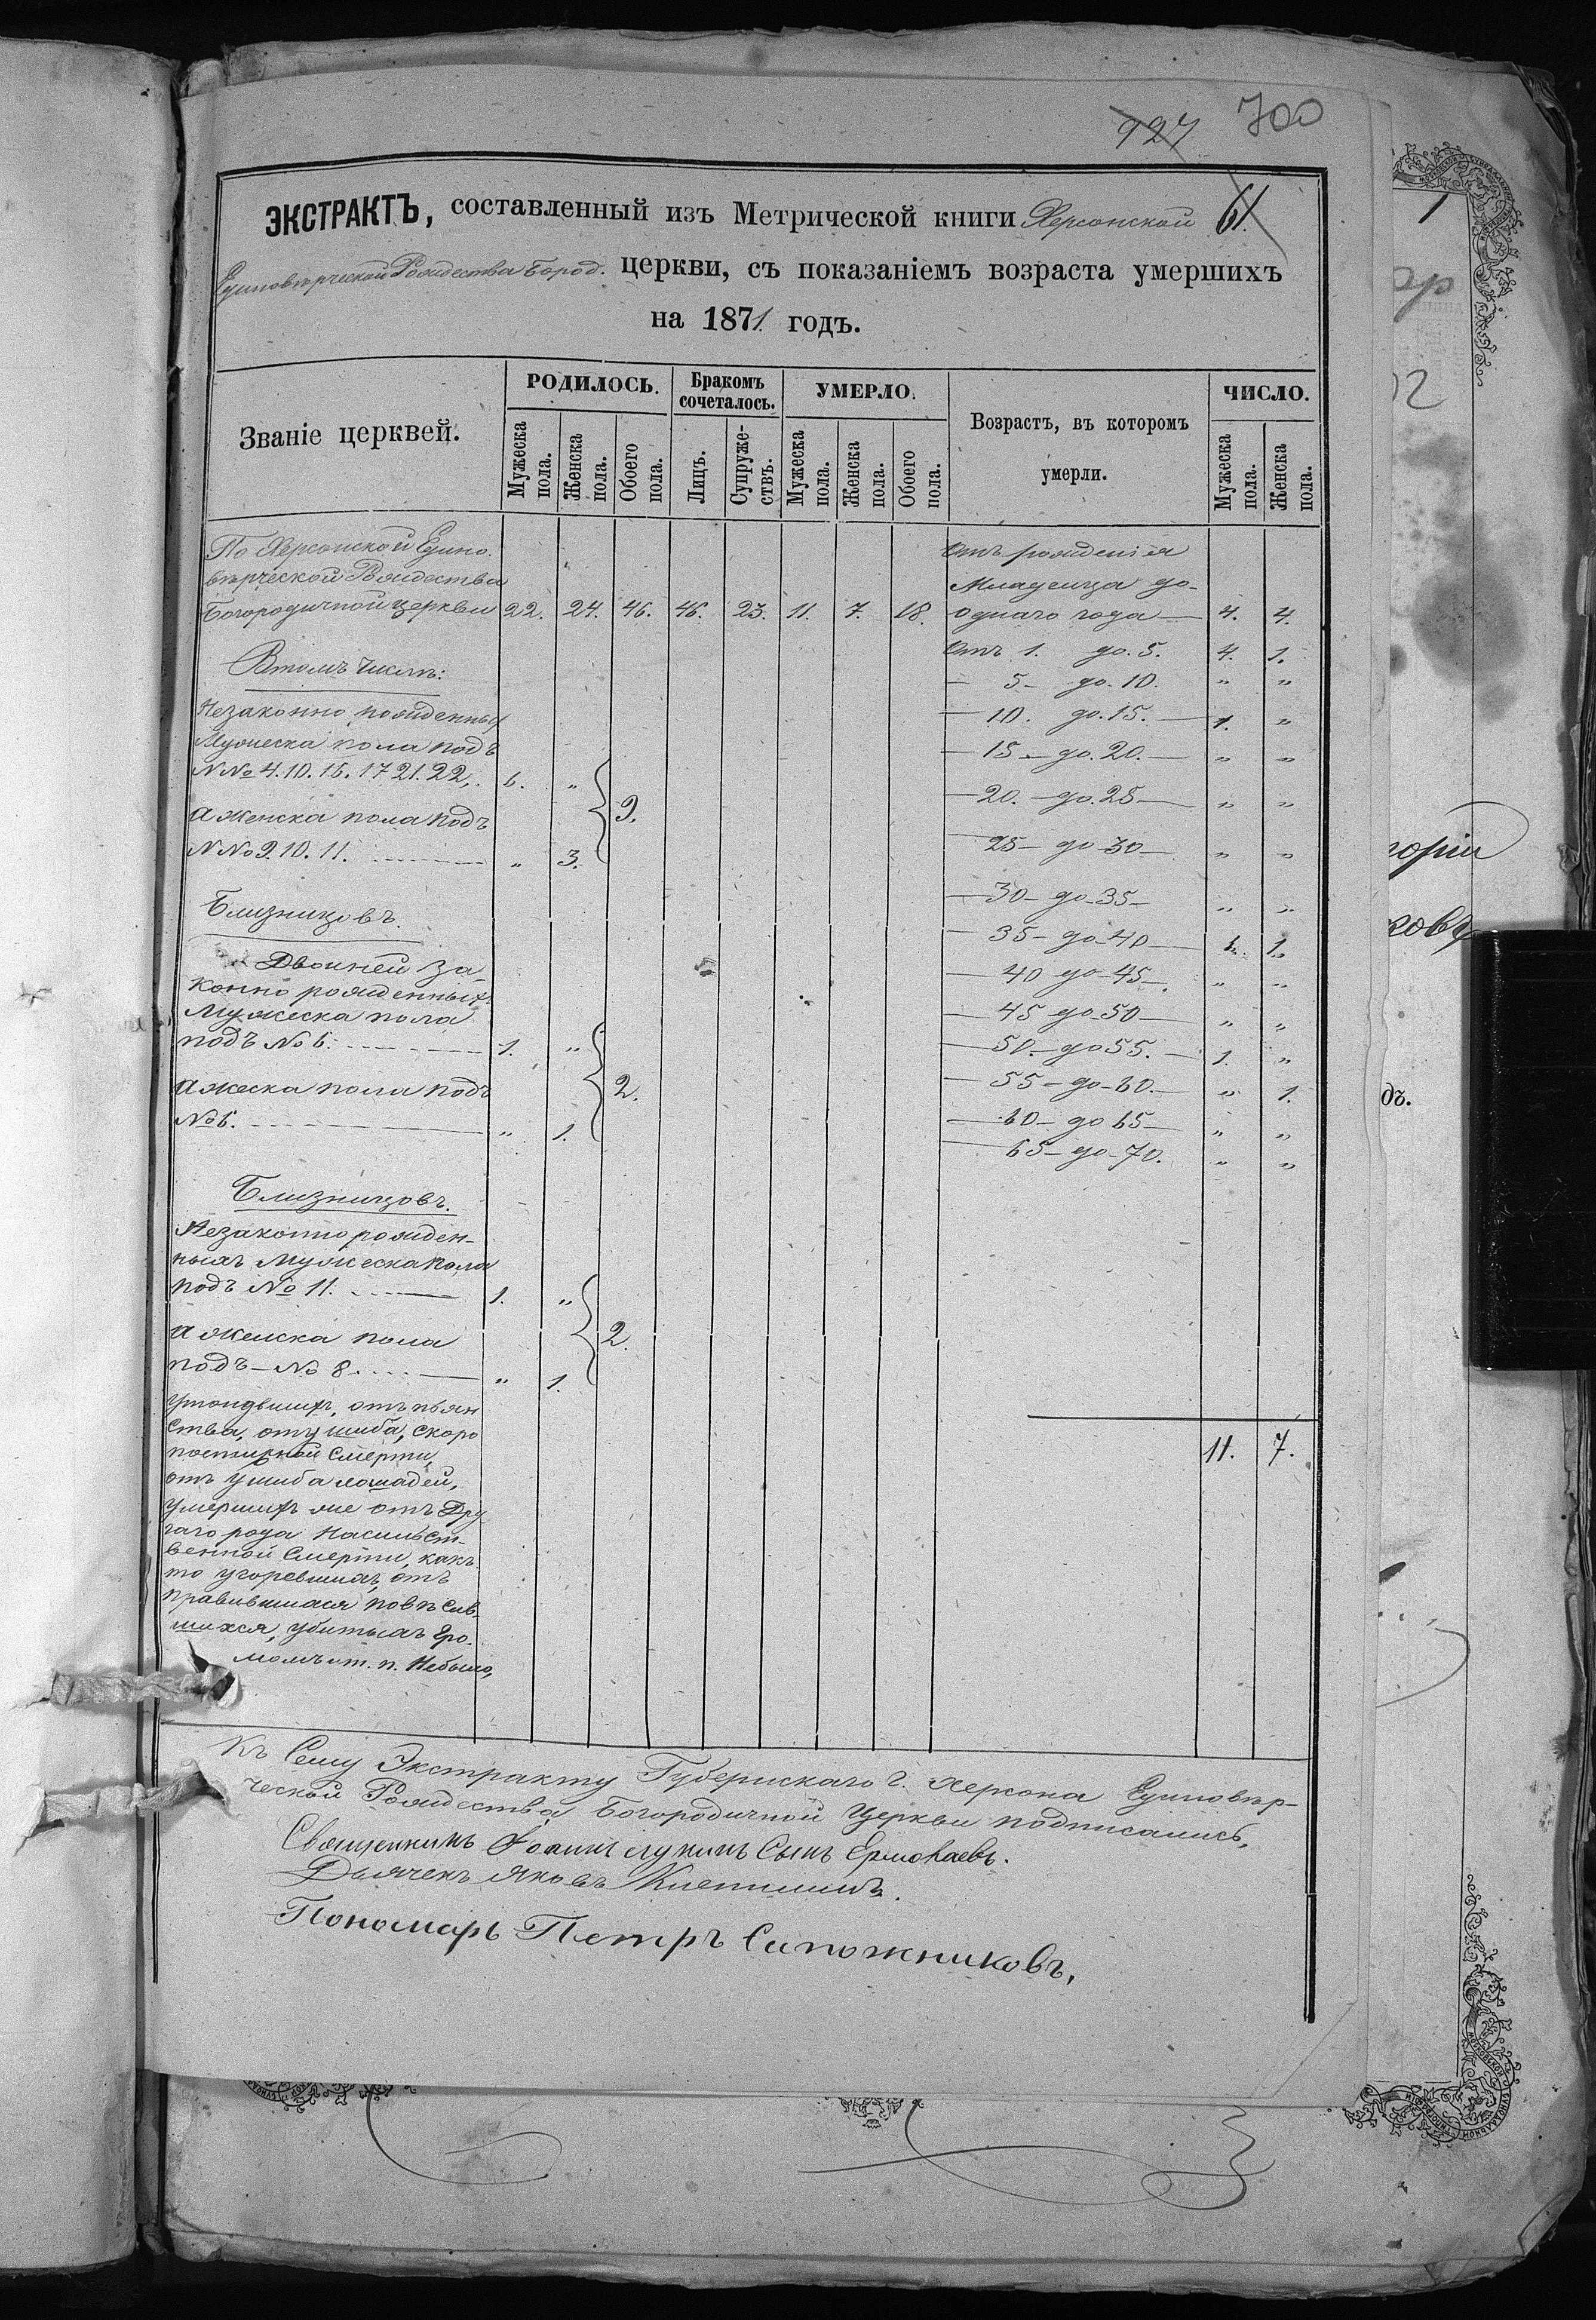 927 700
ЭКСТРАКТЪ, составленный изъ Метрической книги Херсонской 61.
Единовѣрческой Рождества Бород. церкви, съ показаніемъ возраста умершихъ
на 1871 годъ.
Званіе церквей.
РОДИЛОСЬ.
Бракомъ сочеталось.
УМЕРЛО.
Возрастъ, въ которомъ умерли.
ЧИСЛО.
Мужеска пола.
Женска пола.
Обоего пола.
Лицъ.
Супружествъ.
Мужеска пола.
Женска пола.
Обоего пола.
Мужеска пола.
Женска пола.
По Херсонской Едино-
вѣрческой Рождества
Богородичной церкви 22. 24. 46. 46. 23. 11. 7. 18.
Втомъ числѣ:
Незаконно рожденных
Мужеска пола подъ
N№ 4. 10. 16. 17 21. 22. 6. „
9.
а женска пола подъ
N№ 9. 10. 11. „ 3.
Близнцовъ.
Двойней за-
конно рожденныхъ
Мужеска пола
подъ № 6. 1. „
2.
а жеска пола подъ
№ 6. „ 1.
Близницовъ.
Незаконно рожден-
ныхъ Мужеска пола
подъ № 11. 1. „
2.
а женска пола
подъ № 8. „ 1.
утонувшихъ, отъ пьян
ства, отъ ушиба, скоро
постижной Смерти,
отъ ушиба лошадей,
умершихъ же отъ Дру
гаго рода насильст-
венной Смерти, какъ
то угоревшихъ, отъ
правившихся повѣсив-
шихся, убитыхъ Гро-
момъ и т. п. Небыло,
Отъ рожденія
Младенца до-
однаго года 4. 4.
Отъ 1. до. 5. 4. 1.
— 5 — до 10. „ „
— 10. до. 15. — 1. „
— 15 — до. 20. — „ „
— 20. — до. 25 — „ „
— 25 — до 30 — „ „
— 30 — до 35 — „ „
— 35 — до 40 — 1. 1.
— 40 до 45 — „ „
— 45 до 50 — „ „
— 50. — до 55. — 1. „
— 55 — до 60. — „ 1.
— 60 — до 65 — „ „
— 65 — до 70. „ „
11. 7.
Къ Сему Экстракту Губернскаго г. Херсона Единовѣр-
ческой Рождества Богородичной Церкви подписались,
Священникъ Іоаннъ Лукинъ Сынъ Ермолаевъ.
Дьячекъ Яковъ
Пономарь Петръ Сапожниковъ,